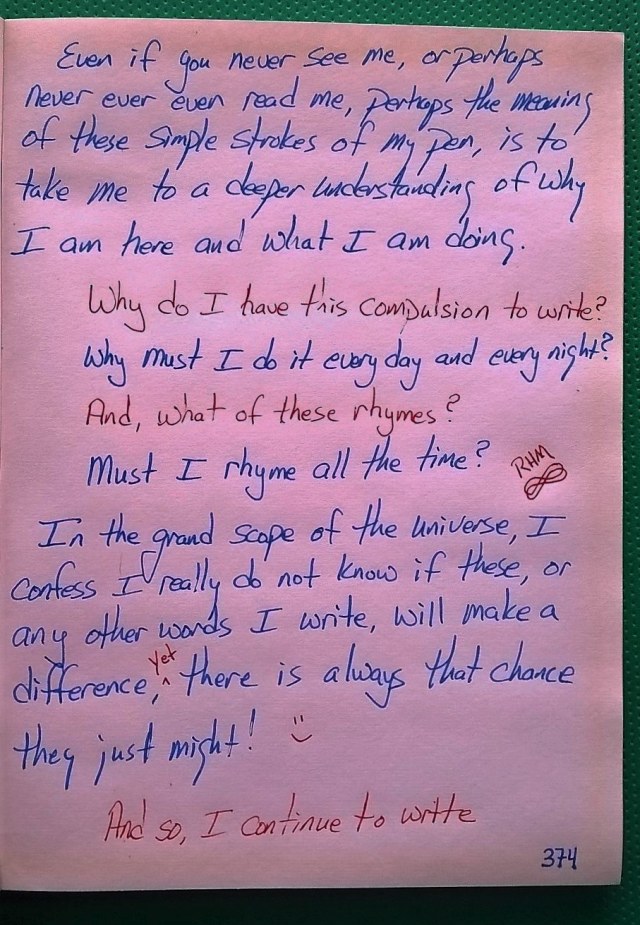 Even if you never see me, or perhaps
never ever even read me, perhaps the meaning
of these simple strokes of my pen, is to
take me to a deeper understanding of why
I am here and what I am doing.
Why do I have this compulsion to write?
Why must I do it every day and every night?
And, what of these rhymes?
Must I rhyme all the time?
RHM
In the grand scope of the universe, I
confess I really do not know if these, or
any other words I write, will make a
difference, yet there is always that chance
they just might! :)
And so, I continue to write
374